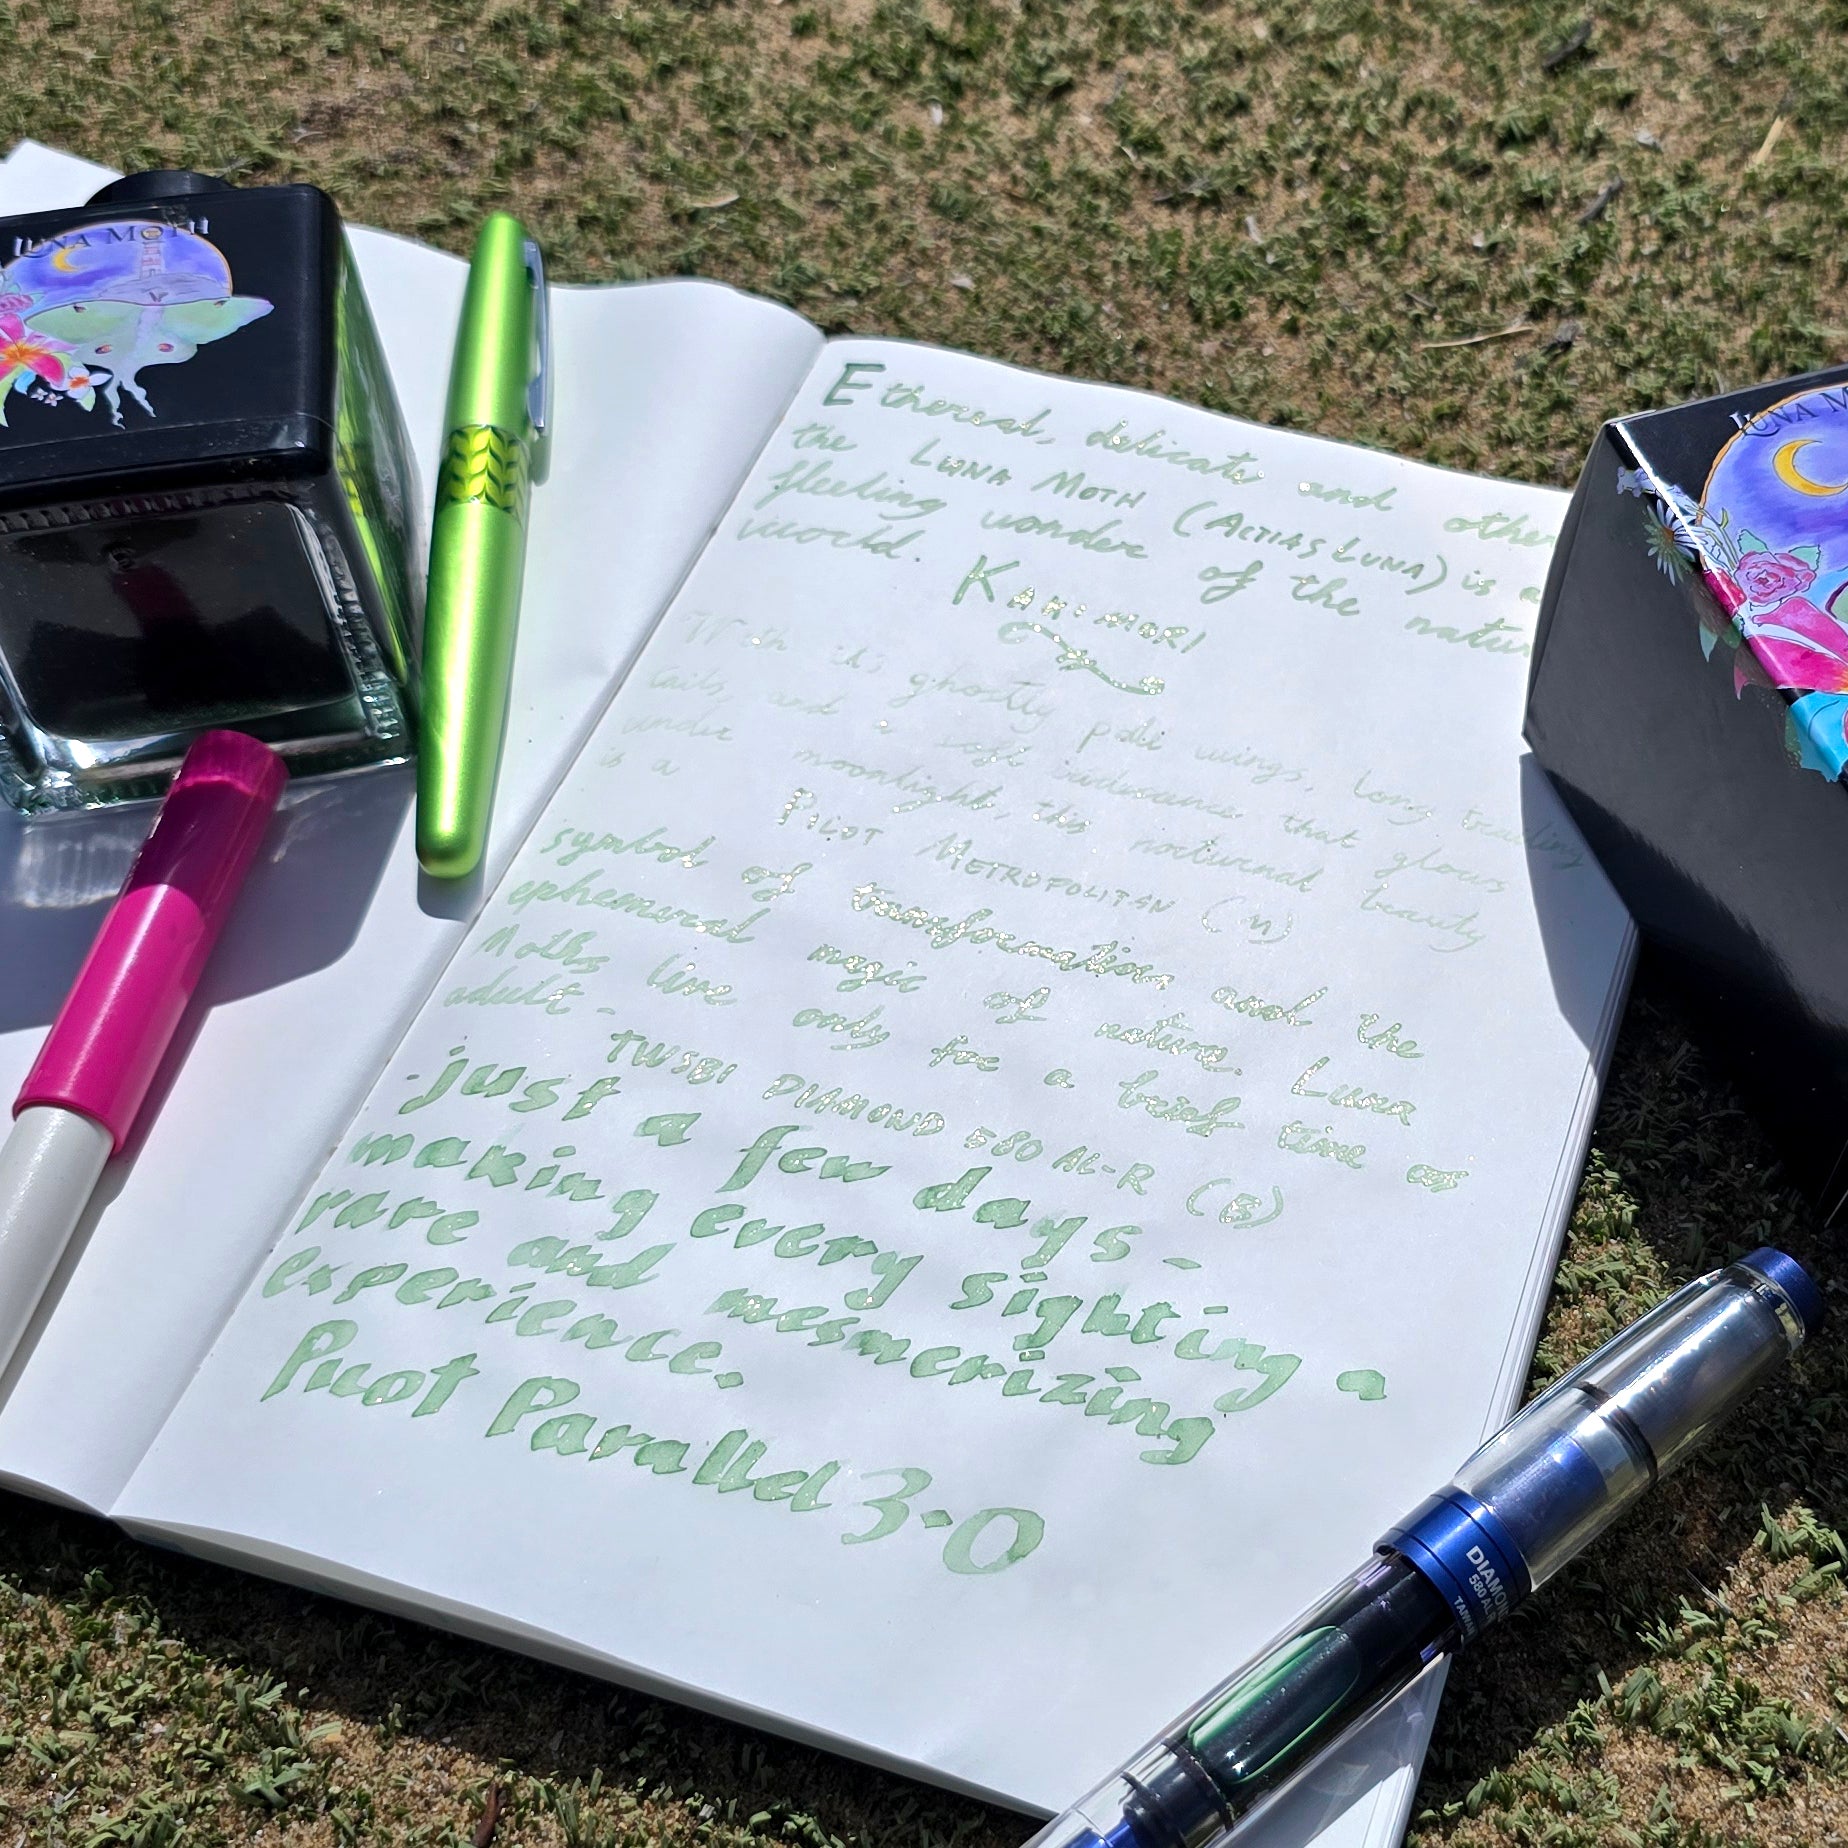 LUNA MOTH
LUNA M
Ethereal, delicate and other
the LUNA MOTH (ACTIAS LUNA) is a
fleeting wonder of the natur
world.
KAKIMORI
With it's ghostly pale wings, long trailing
tails, and a soft iridescence that glows
under moonlight, this nocturnal beauty
is a
PILOT METROPOLITAN (M)
symbol of transformation and the
ephemeral magic of nature. Luna
Moths live only for a brief time as
adult -
TWSBI DIAMOND 580 AL-R (B)
-just a few days -
making every sighting a
rare and mesmerizing
experience.
Pilot Parallel 3.0
DIAMON
580 AL
TAIWAN